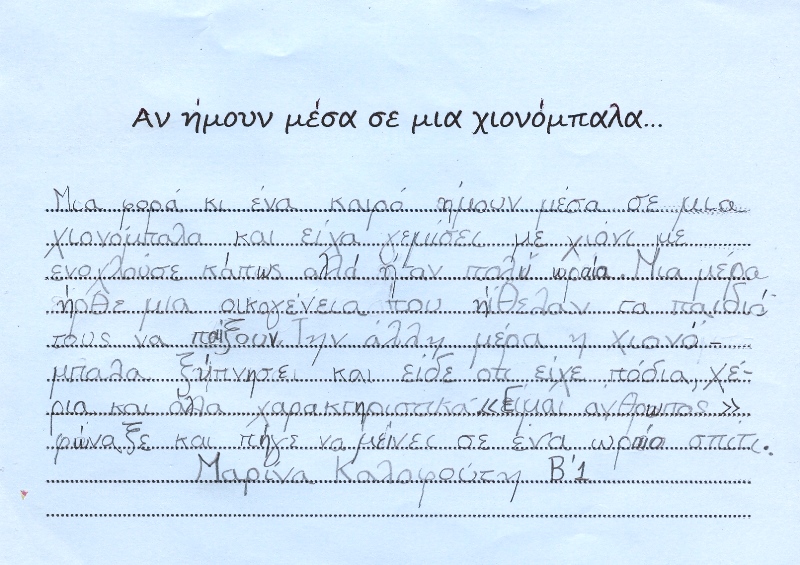 Αν ήμουν μέσα σε μια χιονόμπαλα...
Μια φορά κι ένα καιρό ήμουν μέσα σε μια
χιονόμπαλα και είχα γεμίσει με χιόνι με
ενοχλούσε κάπως αλλά ήταν πολύ ωραία. Μια μέρα
ήρθε μια οικογένεια που ήθελαν τα παιδιά
τους να παίξουν. Την άλλη μέρα η χιονό-
μπαλα ξύπνησει και είδε οτι είχε πόδια, χέ-
ρια και άλλα χαρακτηριστικά «Είμαι ανθρωπος»
φώναξε και πήγε να μείνει σε ένα ωραίο σπίτι.
Μαρίνα Καλαφούτη Β'1